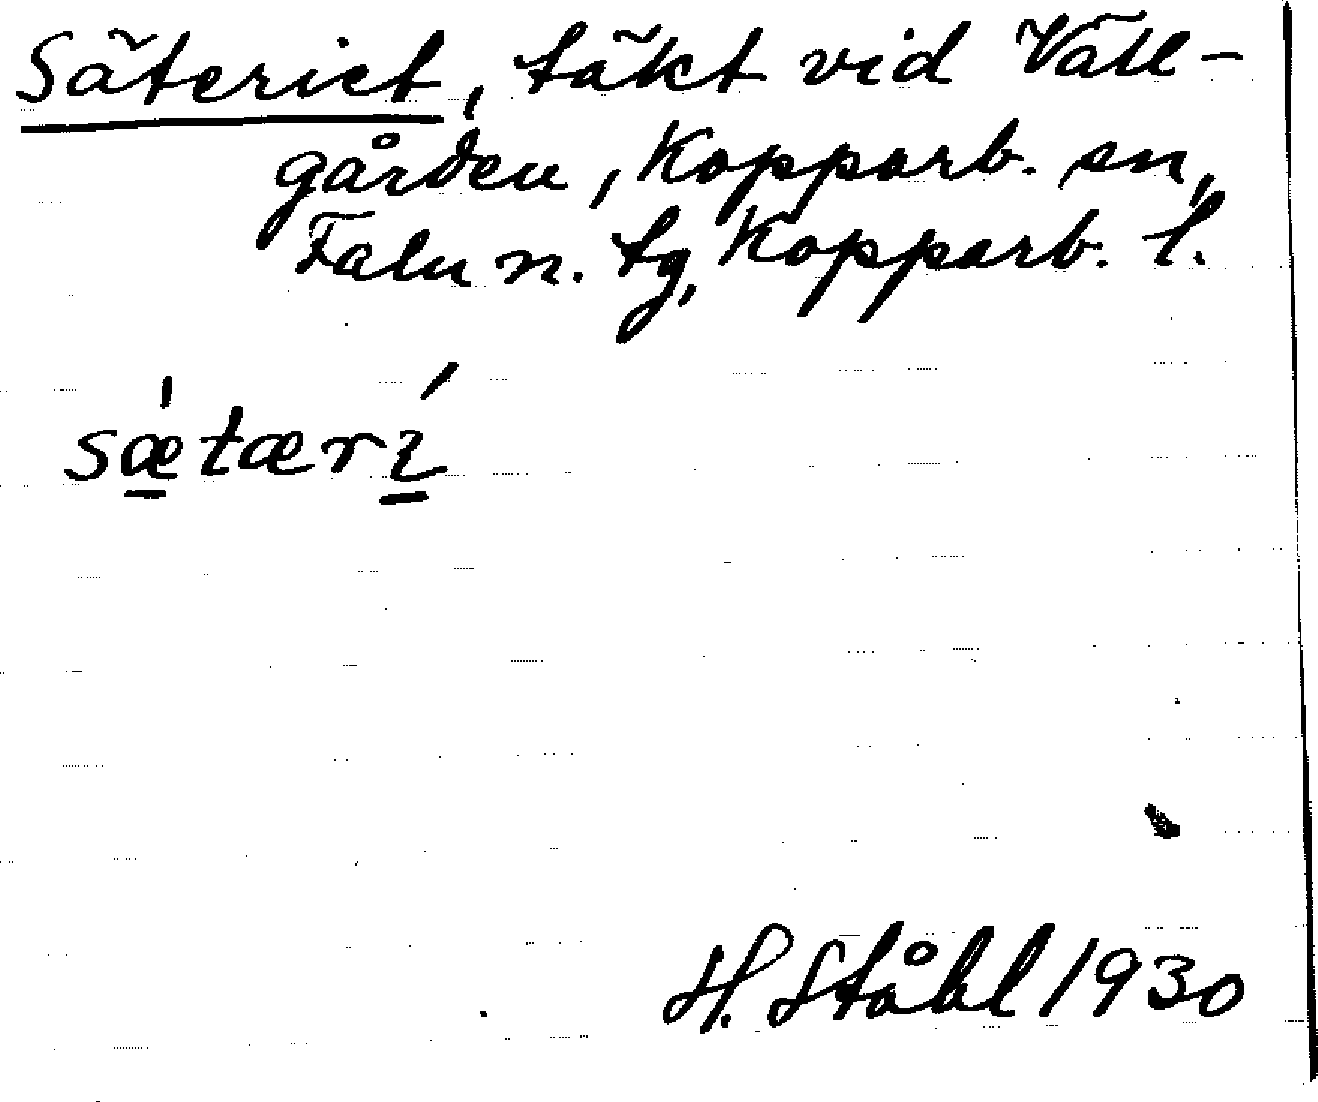 Säteriet, täkt vid Väll-
gården, Kopparb. sn,
Falu n. tg, Kopparb. l.
sæ̠̍tæri̠̍
H. Ståhl 1930